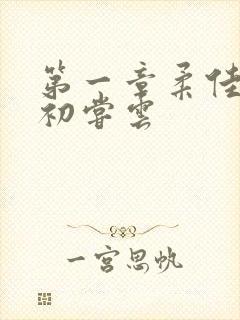 第一章柔佳
初尝云
一宫思帆